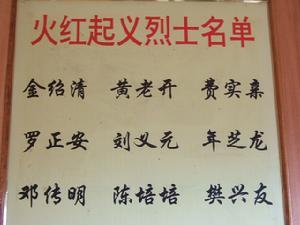 火红起义烈士名单
金绍清 黄老开 费实亲
罗正安 刘义元 年芝龙
邓传明 陈培培 樊兴友